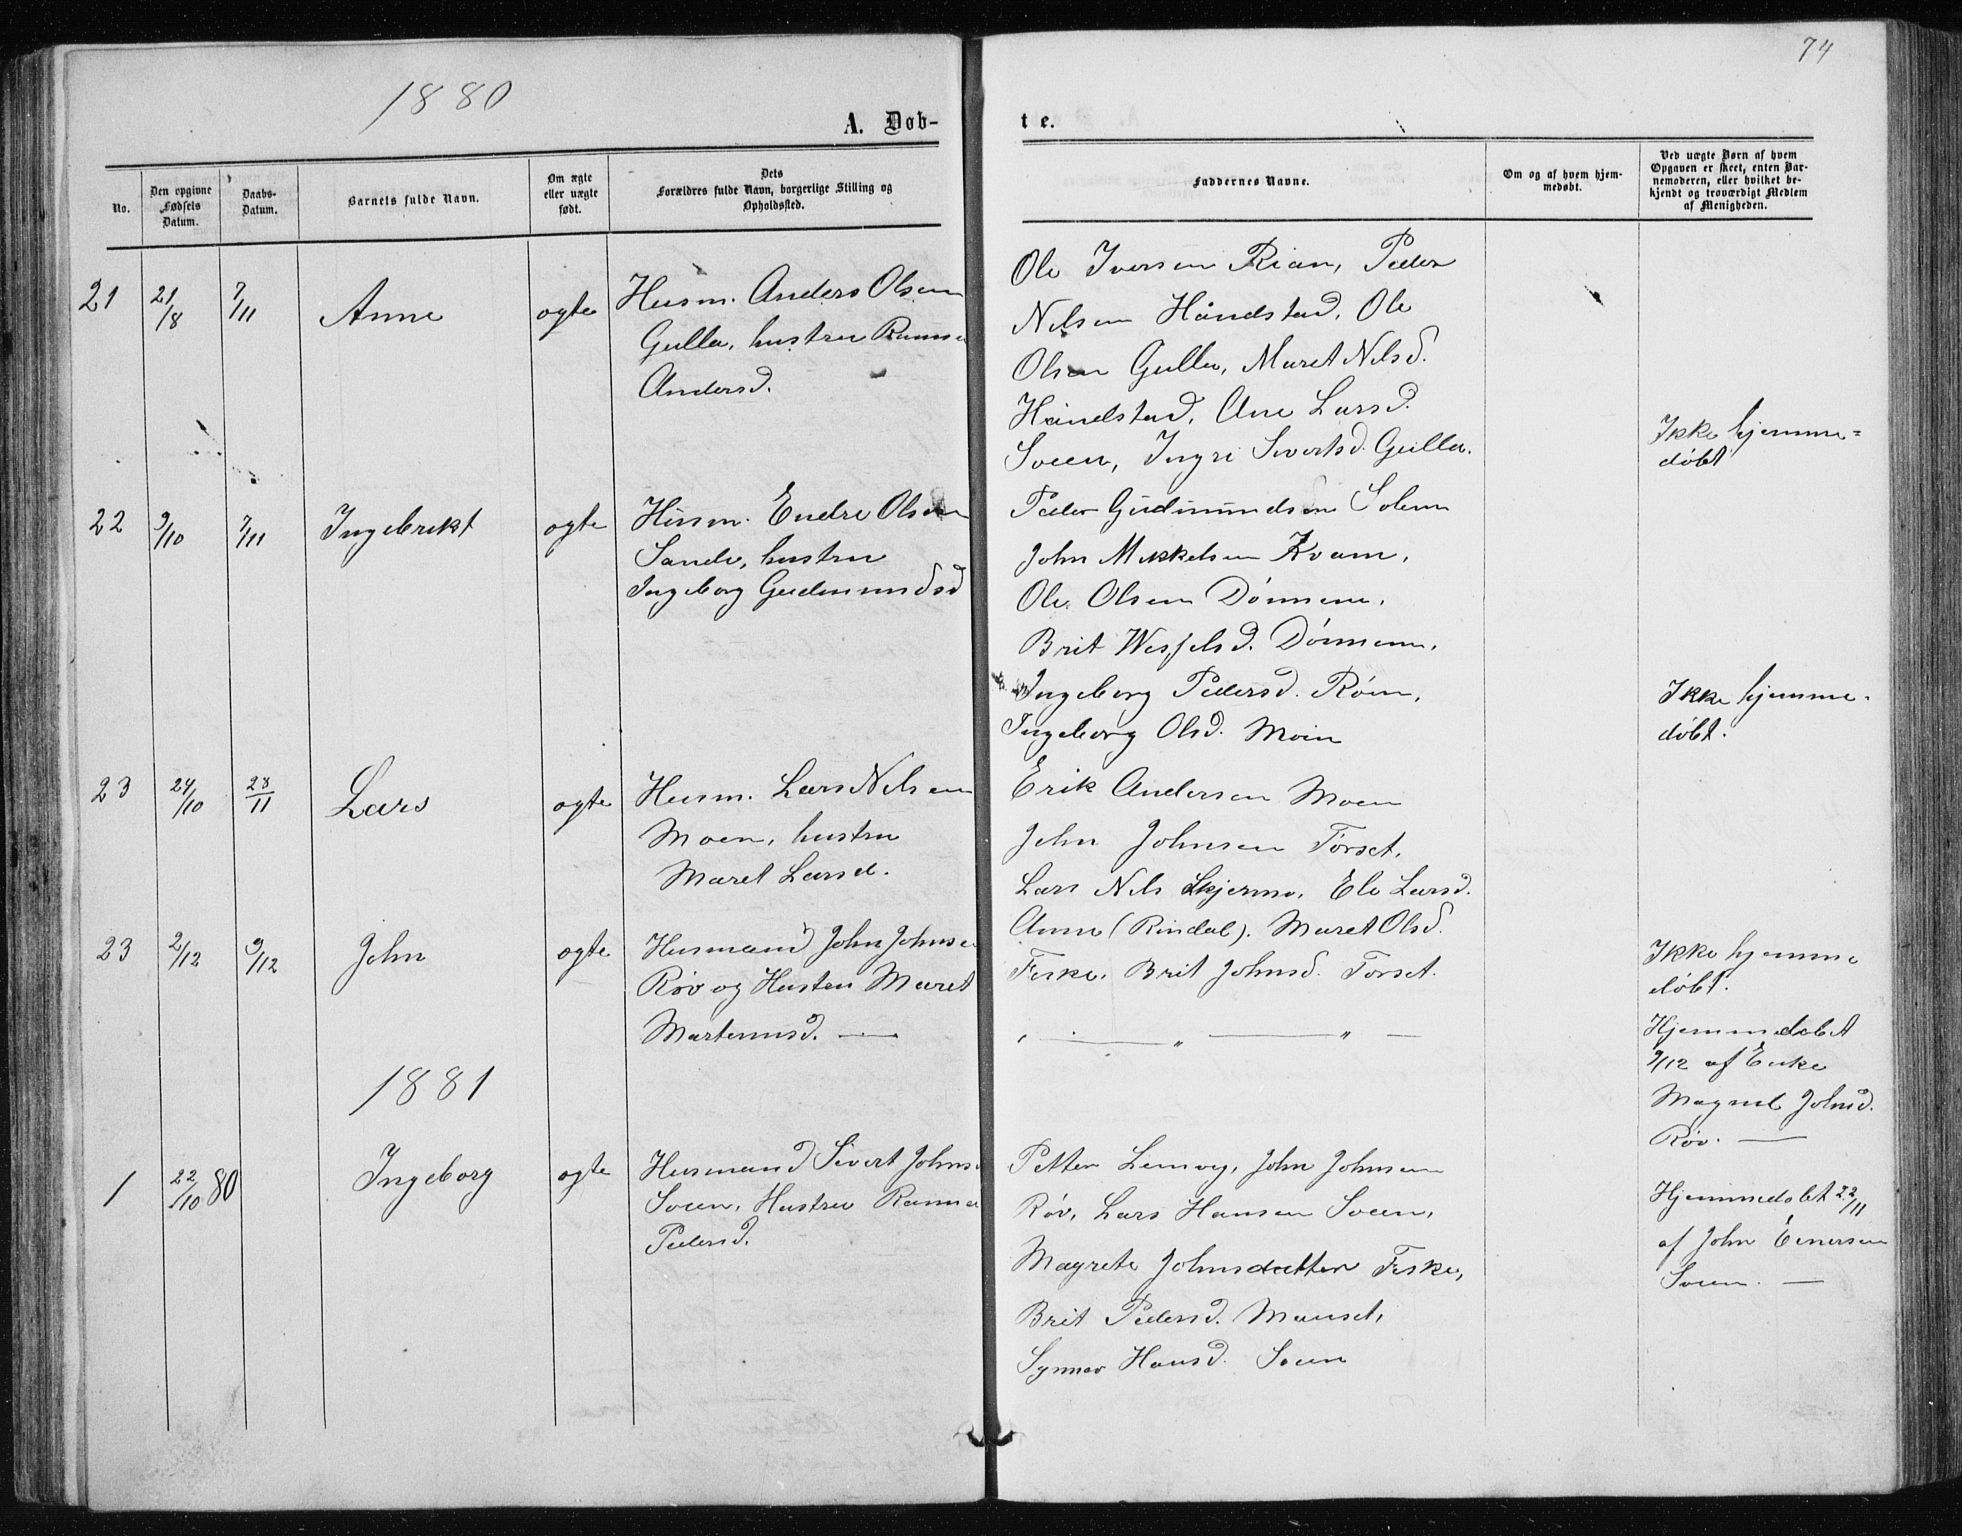 74
1880
A. Døb-
te.
No.
Den opgivne Fødsels Datum.
Daabs-Datum.
Barnets fulde Navn.
Om ægte eller uægte født.
Dets Forældres fulde Navn, borgerlige Stilling og Opholdssted.
Faddernes Navne.
Om og af hvem hjemmedøbt.
Ved uægte Børn af hvem Opgaven er skeet, enten Barnemoderen, eller hvilket bekjendt og troværdigt Medlem af Menigheden.
21 21/8 7/11 Anne ogte Husm. Anders Olsen
Gulla, hustru
Andersd.
Ole Iversen Rian, Peder
Nilsen Håndstad, Ole
Olsen Gulla, Maret Nilsd.
Håndstad, Ane Larsd.
Soeen, Ingri Sivertsd. Gulla.
Ikke hjemme=
døbt
22 9/10 7/11 Ingebrikt ogte Husm. Endre Olsen
Sande, hustru
Ingeborg Gudmundsd
Peder Gudmundsen Solem
John Mikkelsen Kvam,
Ole Olsen Dønnem,
Brit Wesselsd. Dønnem,
Ingeborg Pedersd. Røen,
Ingeborg Olsd. Moen
Ikke hjemme-
døbt.
23 24/10 28/11 Lars ogte Husm. Lars Nilsen
Moen, hustru
Maret Larsd.
Erik Andersen Moen
John Johnsen Tørset,
Lars Nils Skjermo, Eli Larsd.
Anne (Rindal). Maret Olsd.
Feske, Brit Johnsd. Torset.
Ikke hjemme
døbt.
23 2/12 9/12 John ogte Husmand John Johnse
Røv og Hustru Maret
Martinusd. —
" — " — " —
Hjemmedøbt
9/12 af Enke
Magnil Johnsd.
Røv. —
1881
1 22/10 80 Ingeborg ogte Husmand Sivert Johns
Soeen, Hustru
Pedersd.
Petter Lemvig, John Johnsen
Røv, Lars Hansen Soeen,
Magrete Johnsdatter Feske,
Brit Pedersd. Mauset,
Synnev Hansd. Soeen
Hjemmedøbt 22/11
af John Einersen
Soeen. —